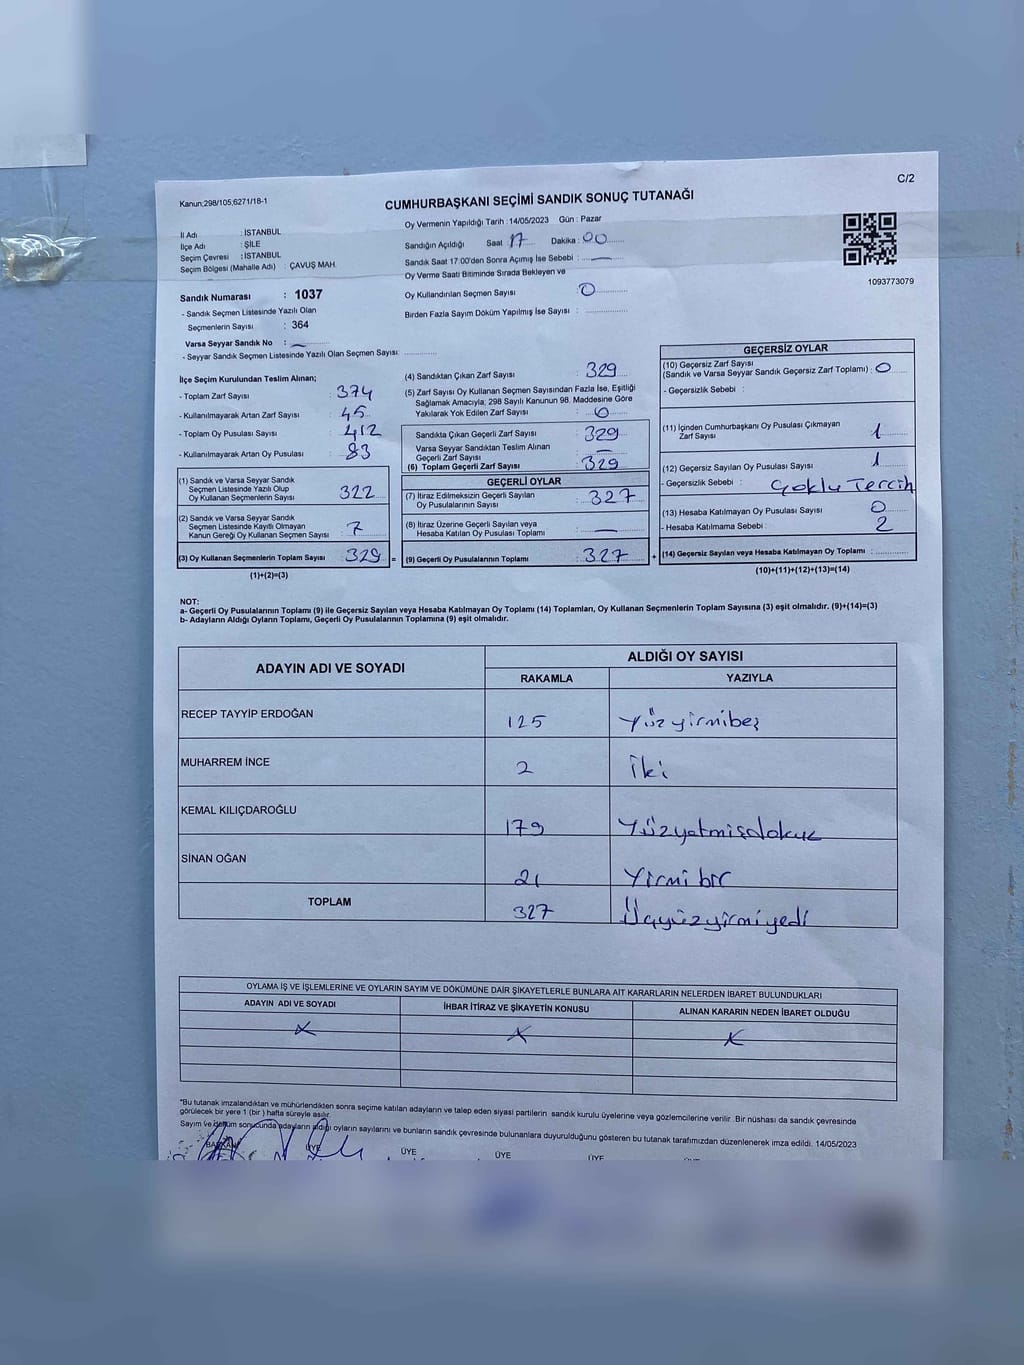 C/2
Kanun;298/105;6271/18-1
CUMHURBAŞKANI SEÇİMİ SANDIK SONUÇ TUTANAĞI
İl Adı : İSTANBUL
İlçe Adı : ŞİLE
Seçim Çevresi : İSTANBUL
Seçim Bölgesi (Mahalle Adı) : ÇAVUŞ MAH.
Oy Vermenin Yapıldığı Tarih : 14/05/2023 Gün : Pazar
Sandığın Açıldığı Saat : 17 Dakika : 00
Sandık Saat 17:00'den Sonra Açımış İse Sebebi : —
Oy Verme Saati Bitiminde Sırada Bekleyen ve
Oy Kullandırılan Seçmen Sayısı : 0
Birden Fazla Sayım Döküm Yapılmış İse Sayısı :
1093773079
Sandık Numarası : 1037
- Sandık Seçmen Listesinde Yazılı Olan
Seçmenlerin Sayısı : 364
Varsa Seyyar Sandık No : —
- Seyyar Sandık Seçmen Listesinde Yazılı Olan Seçmen Sayısı:
İlçe Seçim Kurulundan Teslim Alınan;
- Toplam Zarf Sayısı : 374
- Kullanılmayarak Artan Zarf Sayısı : 45
- Toplam Oy Pusulası Sayısı : 412
- Kullanılmayarak Artan Oy Pusulası : 83
(1) Sandık ve Varsa Seyyar Sandık
Seçmen Listesinde Yazılı Olup
Oy Kullanan Seçmenlerin Sayısı 322
(2) Sandık ve Varsa Seyyar Sandık
Seçmen Listesinde Kayıtlı Olmayan
Kanun Gereği Oy Kullanan Seçmen Sayısı 7
(3) Oy Kullanan Seçmenlerin Toplam Sayısı 329 =
(1)+(2)=(3)
(4) Sandıktan Çıkan Zarf Sayısı : 329
(5) Zarf Sayısı Oy Kullanan Seçmen Sayısından Fazla İse, Eşitliği
Sağlamak Amacıyla, 298 Sayılı Kanunun 98. Maddesine Göre
Yakılarak Yok Edilen Zarf Sayısı : 0
Sandıkta Çıkan Geçerli Zarf Sayısı : 329
Varsa Seyyar Sandıktan Teslim Alınan
Geçerli Zarf Sayısı : —
(6) Toplam Geçerli Zarf Sayısı : 329
GEÇERLİ OYLAR
(7) İtiraz Edilmeksizin Geçerli Sayılan
Oy Pusulalarının Sayısı : 327
(8) İtiraz Üzerine Geçerli Sayılan veya
Hesaba Katılan Oy Pusulası Toplamı : —
(9) Geçerli Oy Pusulalarının Toplamı : 327 +
GEÇERSİZ OYLAR
(10) Geçersiz Zarf Sayısı
(Sandık ve Varsa Seyyar Sandık Geçersiz Zarf Toplamı) : 0
- Geçersizlik Sebebi :
(11) İçinden Cumhurbaşkanı Oy Pusulası Çıkmayan
Zarf Sayısı : 1
(12) Geçersiz Sayılan Oy Pusulası Sayısı : 1
- Geçersizlik Sebebi : Çoklu Tercih
(13) Hesaba Katılmayan Oy Pusulası Sayısı : 0
- Hesaba Katılmama Sebebi : 2
(14) Geçersiz Sayılan veya Hesaba Katılmayan Oy Toplamı :
(10)+(11)+(12)+(13)=(14)
NOT:
a- Geçerli Oy Pusulalarının Toplamı (9) ile Geçersiz Sayılan veya Hesaba Katılmayan Oy Toplamı (14) Toplamları, Oy Kullanan Seçmenlerin Toplam Sayısına (3) eşit olmalıdır. (9)+(14)=(3)
b- Adayların Aldığı Oyların Toplamı, Geçerli Oy Pusulalarının Toplamına (9) eşit olmalıdır.
ADAYIN ADI VE SOYADI ALDIĞI OY SAYISI
RAKAMLA YAZIYLA
RECEP TAYYİP ERDOĞAN 125 Yüzyirmibeş
MUHARREM İNCE 2 İki
KEMAL KILIÇDAROĞLU 179 Yüzyetmişdokuz
SİNAN OĞAN 21 Yirmi bir
TOPLAM 327 Üçyüzyirmiyedi
OYLAMA İŞ VE İŞLEMLERİNE VE OYLARIN SAYIM VE DÖKÜMÜNE DAİR ŞİKAYETLERLE BUNLARA AİT KARARLARIN NELERDEN İBARET BULUNDUKLARI
ADAYIN ADI VE SOYADI İHBAR İTİRAZ VE ŞİKAYETİN KONUSU ALINAN KARARIN NEDEN İBARET OLDUĞU
X X X
*Bu tutanak imzalandıktan ve mühürlendikten sonra seçime katılan adayların ve talep eden siyasi partilerin sandık kurulu üyelerine veya gözlemcilerine verilir. Bir nüshası da sandık çevresinde
görülecek bir yere 1 (bir ) hafta süreyle asılır.
Sayım ve döküm sonucunda adayların aldığı oyların sayılarını ve bunların sandık çevresinde bulunanlara duyurulduğunu gösteren bu tutanak tarafımızdan düzenlenerek imza edildi. 14/05/2023
BAŞKAN ÜYE ÜYE ÜYE ÜYE